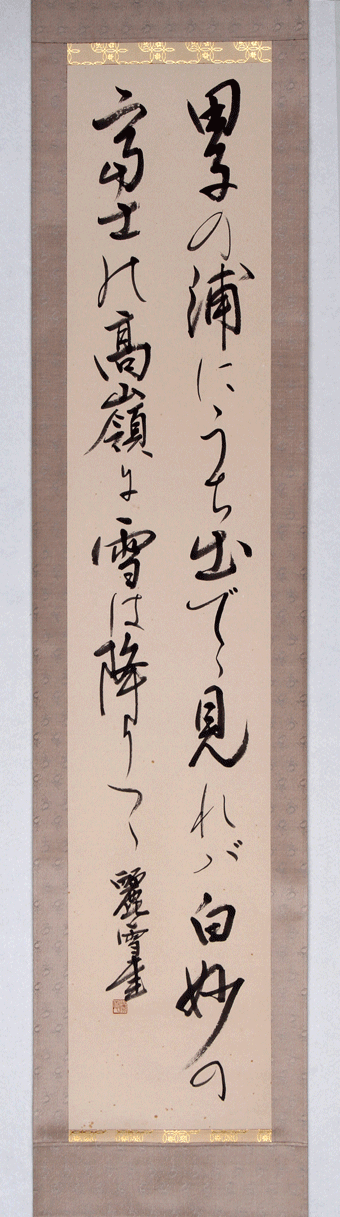 田子の浦にうち出でゝ見れバ白妙の
富士の高嶺に雪は降りつゝ 麗雪書